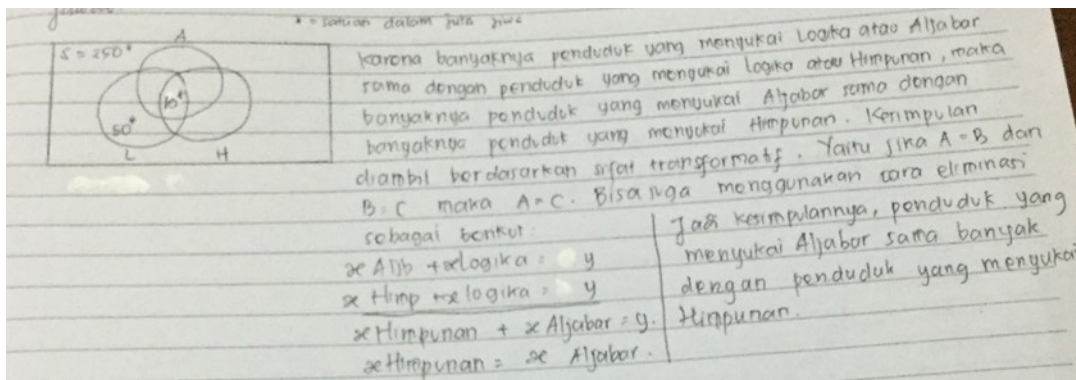 * = satuan dalam juta jiwa
S = 250*
A
10*
50*
L
H
karena banyaknya penduduk yang menyukai Logika atau Aljabar
sama dengan penduduk yang menyukai logika atau Himpunan, maka
banyaknya penduduk yang menyukai Aljabar sama dengan
banyaknya penduduk yang menyukai Himpunan. Kesimpulan
diambil berdasarkan sifat transformatif. Yaitu jika A = B dan
B = C maka A = C. Bisa juga menggunakan cara eliminasi
sebagai berikut:
x Aljb + x logika = y
x Himp + x logika = y
x Himpunan + x Aljabar = y.
x Himpunan = x Aljabar.
Jadi kesimpulannya, penduduk yang
menyukai Aljabar sama banyak
dengan penduduk yang menyukai
Himpunan.